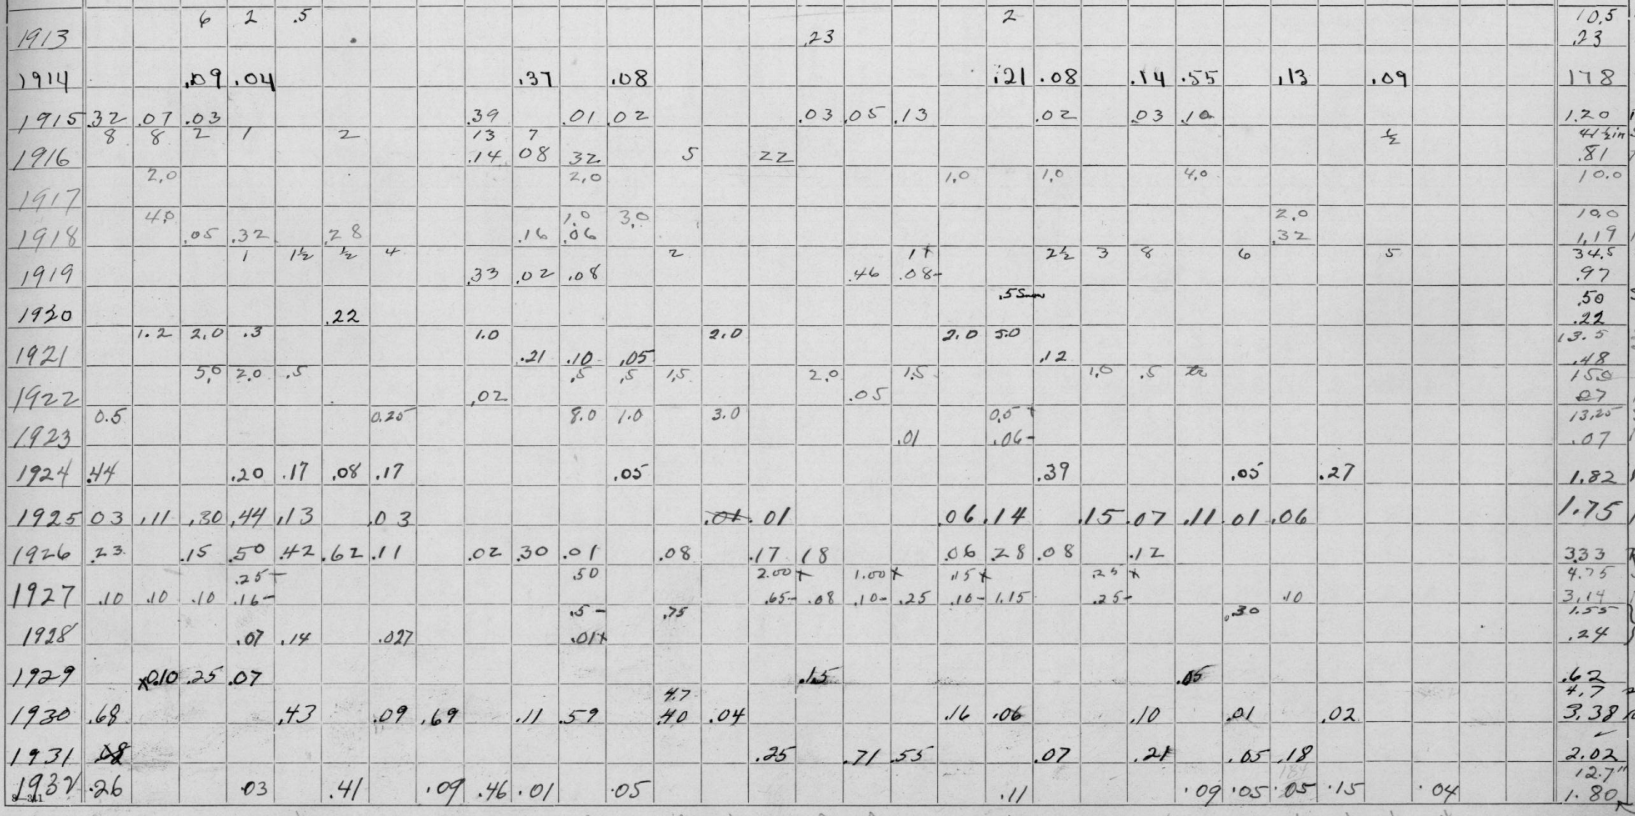 6 2 .5 2 10.5
1913 .23 .23
1914 .09 .04 .37 .08 .21 .08 .14 .55 .13 .09 178
1915 .32 .07 .03 .39 .01 .02 .03 .05 .13 .02 .03 .10 1.20
8 8 2 1 2 13 7 ½ 41½in
1916 .14 08 32 5 22 .81
2.0 2.0 1.0 1.0 4.0 10.0
1917
4.0 1.0 3.0 2.0 10.0
1918 .05 .32 .28 .16 .06 .32 1.19
1 1½ ½ 4 2 1+ 2½ 3 8 6 5 34.5
1919 .33 .02 .08 .46 .08- .97
.5 Snow .50
1920 .22 .22
1.2 2.0 .3 1.0 2.0 2.0 5.0 13.5
1921 .21 .10 .05 .12 .48
5.0 2.0 .5 .5 .5 1.5 2.0 1.5 1.0 .5 tr 150
1922 .02 .05 07
0.5 0.25 8.0 1.0 3.0 0.5+ 13.25
1923 .01 .06- .07
1924 .44 .20 .17 .08 .17 .05 .39 .05 .27 1.82
1925 03 .11 .30 .44 .13 .03 .01 .01 .06 .14 .15 .07 .11 .01 .06 1.75
1926 .23 .15 .50 .42 .62 .11 .02 .30 .01 .08 .17 18 .06 .28 .08 .12 333
.25+ .50 2.00+ 1.00+ .15+ .25+ 4.75
1927 .10 .10 .10 .16- .65- .08 .10- .25 .10- 1.15 .25- .10 3.14
.5- .75 .30 1.55
1928 .07 .14 .027 .01+ .24
1929 x0.10 .25 .07 .15 .05 .62
4.7 4.7
1930 .68 .43 .09 .69 .11 .59 .40 .04 .16 .06 .10 .01 .02 3.38
1931 .08 .25 .71 .55 .07 .21 .05 .18 2.02
12.7"
1932 .26 .03 .41 .09 .46 .01 .05 .11 .09 .05 .05 .15 .04 1.80